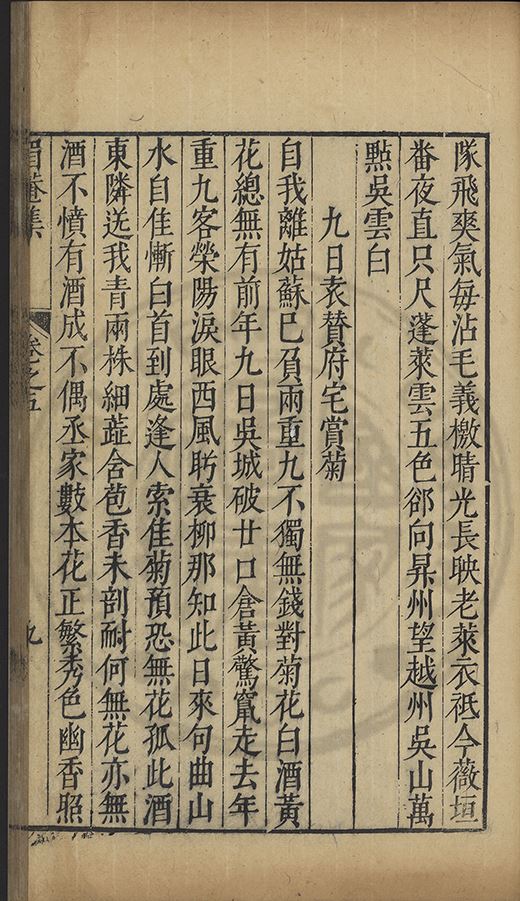 隊飛爽氣每沾毛義檄晴光長映老萊衣祗今薇垣
番夜直只尺蓬萊雲五色郤向昇州望越州吳山萬
㸃吳雲白
九日袁賛府宅賞菊
自我離姑蘇已負兩重九不獨無錢對菊花白酒黃
花總無有前年九日吳城破廿口倉黃驚竄走去年
重九客滎陽淚眼西風眄衰柳那知此日來句曲山
水自佳慚白首到處逢人索佳菊預恐無花孤此酒
東隣送我青兩株細蘂含苞香未剖耐何無花亦無
酒不憤有酒成不偶丞家數本花正繁秀色幽香照
眉菴集
卷之五
九